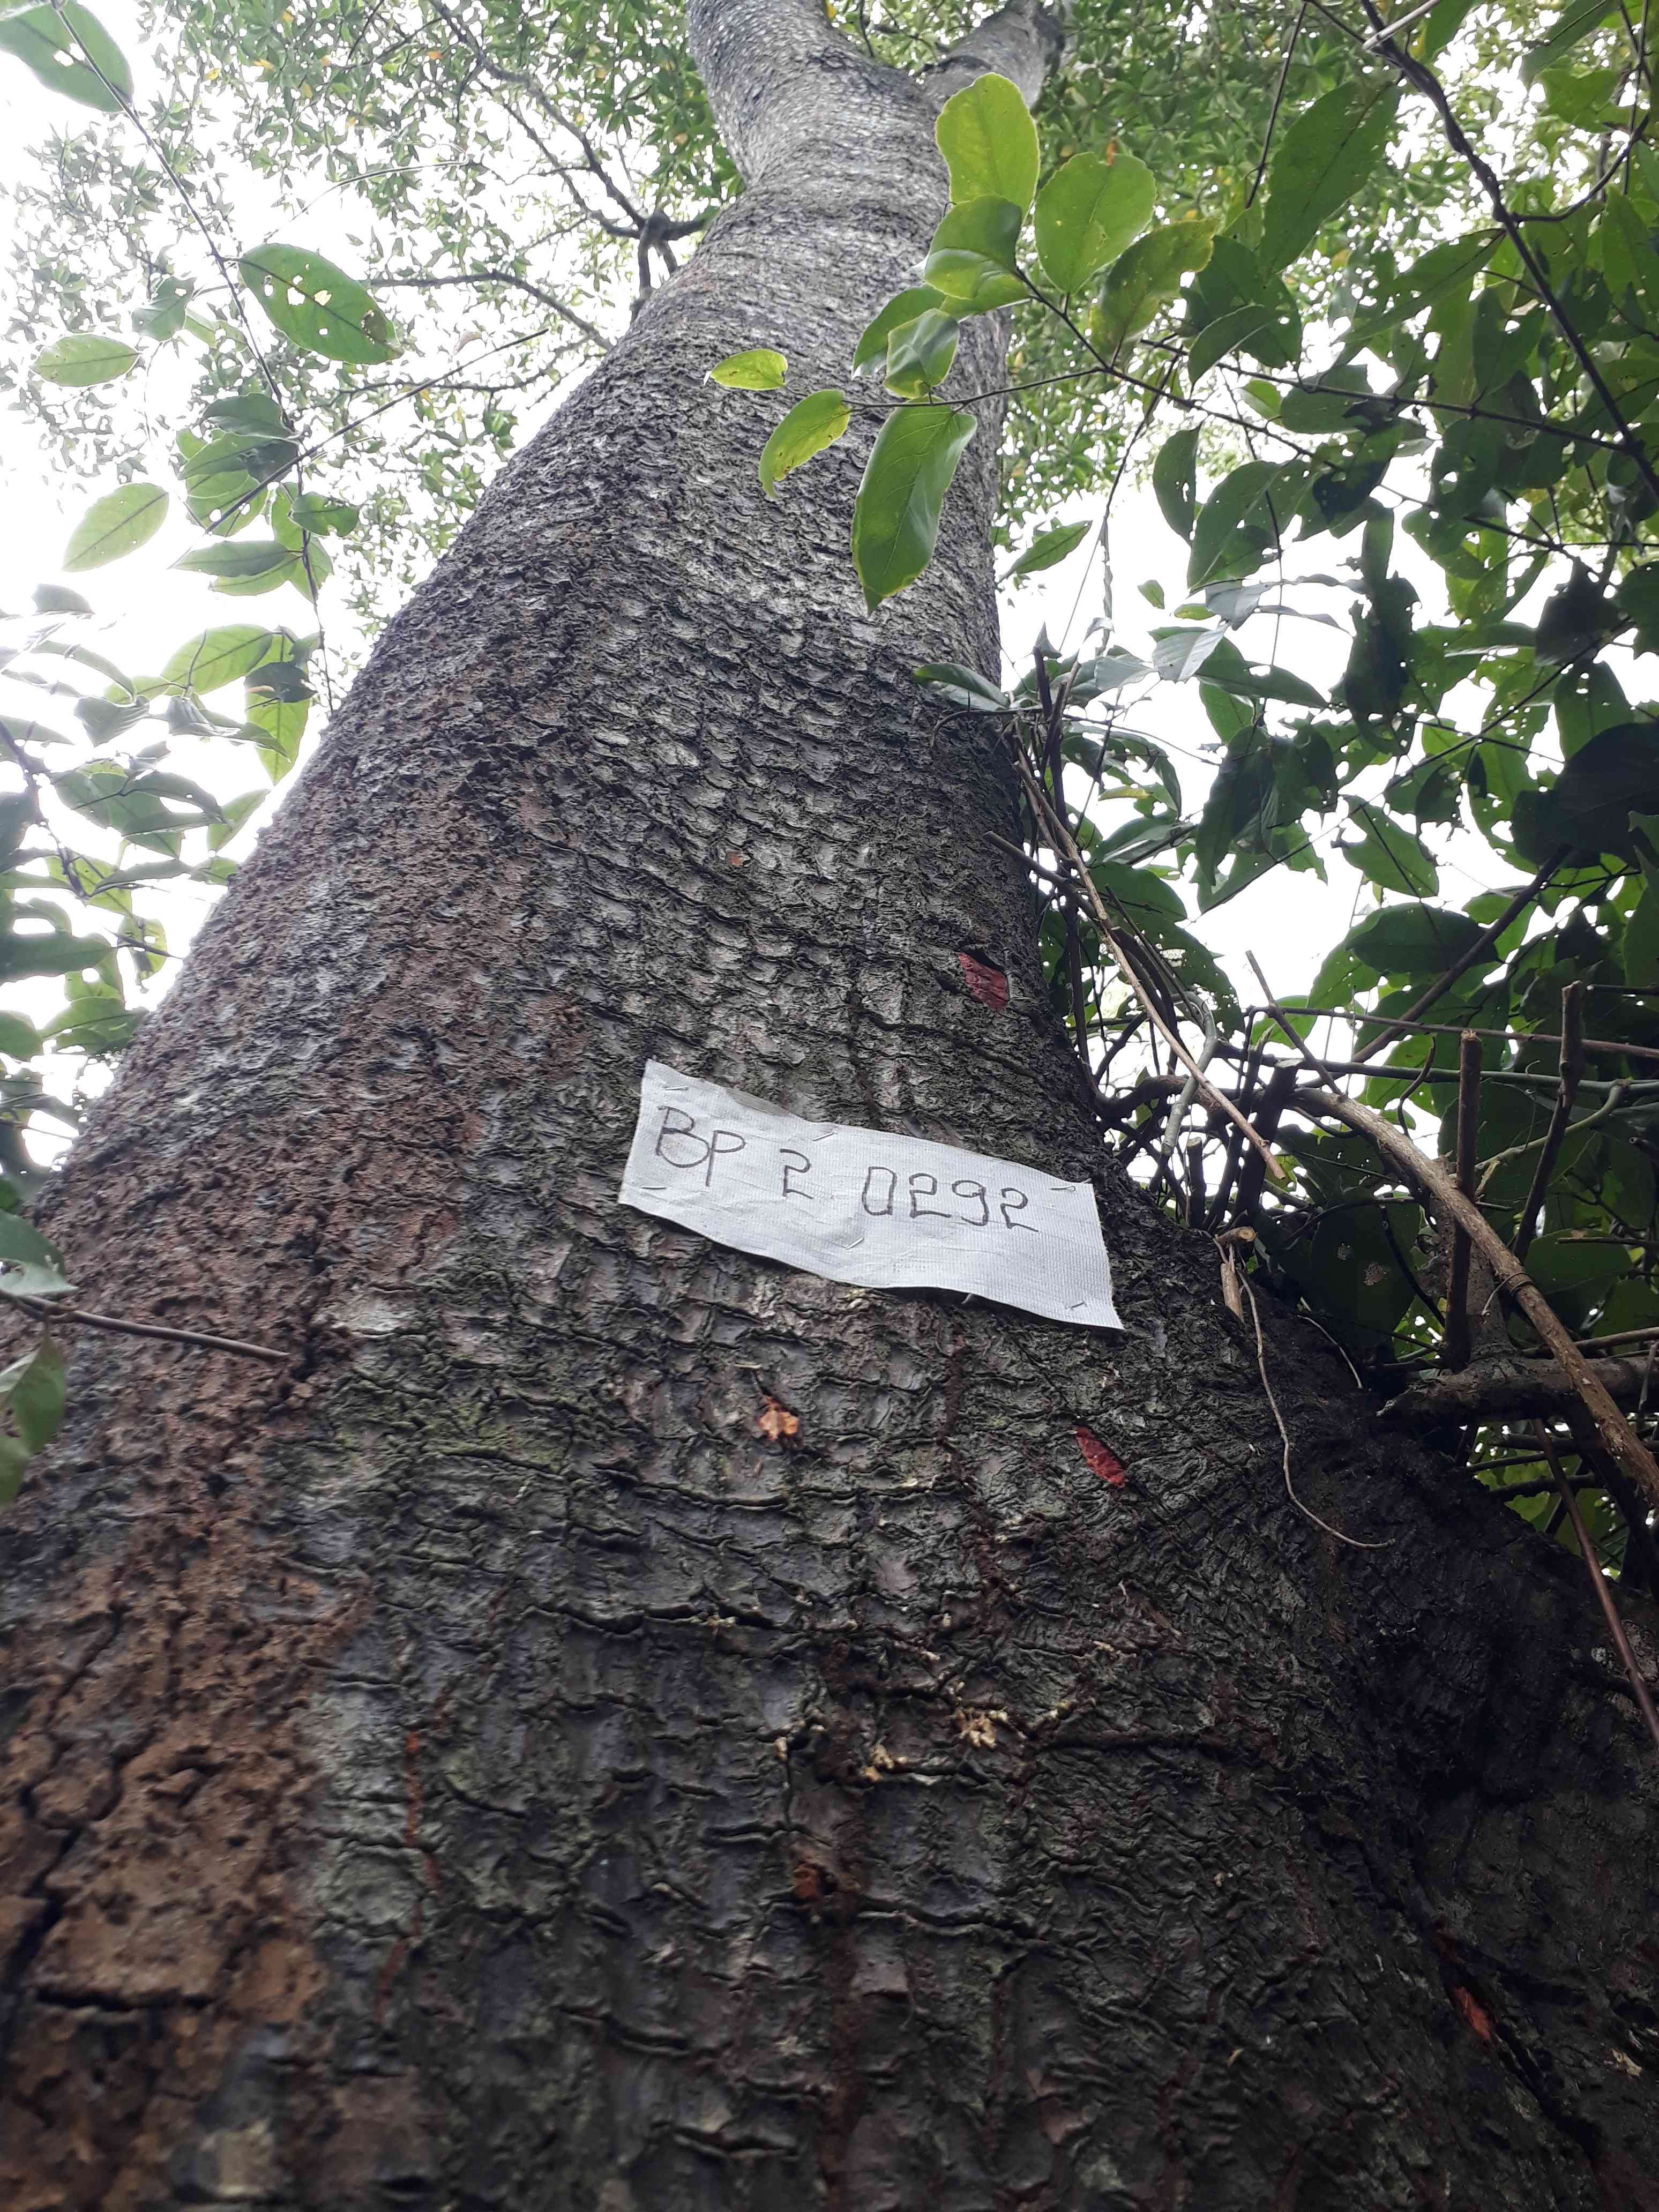 BP 2 0292